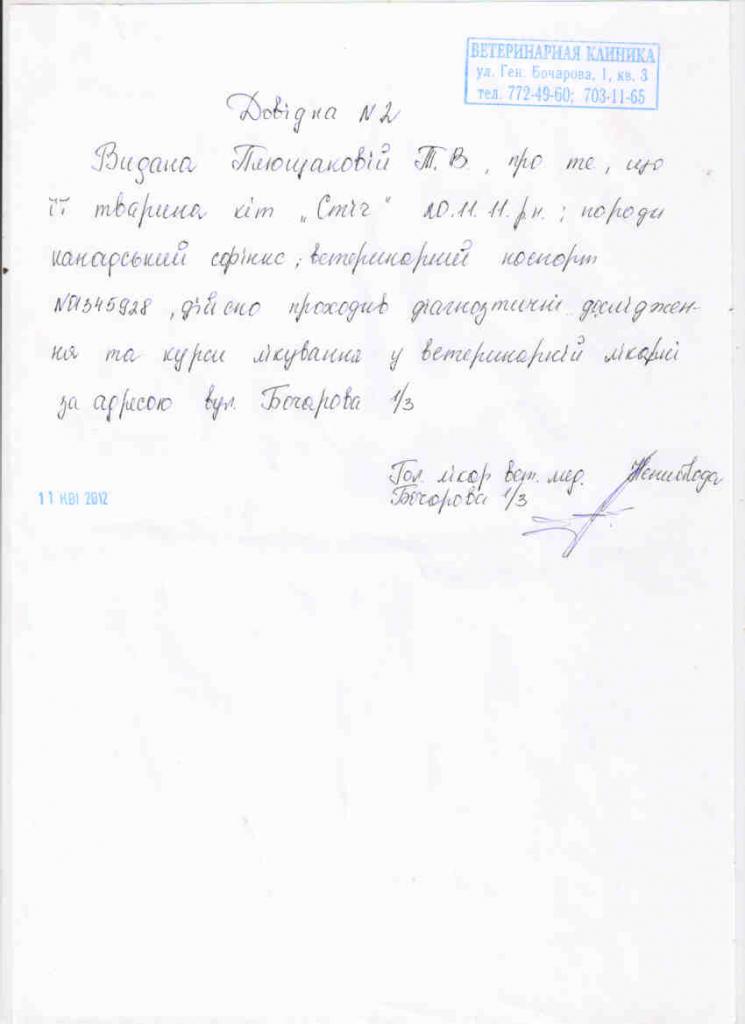 ВЕТЕРИНАРНАЯ КЛИНИКА
ул. Ген. Бочарова, 1, кв. 3
тел. 772-49-60; 703-11-65
Довідка N2
Видана Плющаковій Т.В., про те, що
її тварина кіт „Стіч“ 20.11.11.р.н.; породи
канадський сфінкс; ветеринарний паспорт
дійсно проходив діагнозтичні дослiджен-
ня та курси лікування у ветеринарній лікарні
за адресою вул. Бочарова 1/3
Гол. лікар вет. мед.
Бочарова 1/3
11 КВІ 2012